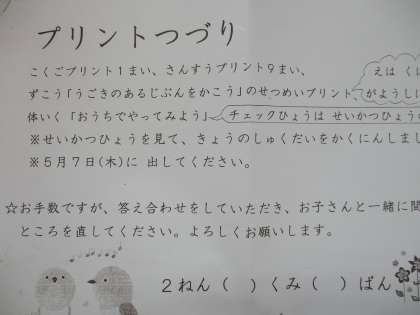 プリントつづり
こくごプリント1まい、さんすうプリント9まい、
えは く
ずこう「うごきのあるじぶんをかこう」のせつめいプリント、がようし
体いく「おうちでやってみよう」 チェックひょうは せいかつひょう
※せいかつひょうを見て、きょうのしゅくだいをかくにんしまし
※5月7日(木)に 出してください。
☆お手数ですが、答え合わせをしていただき、お子さんと一緒に間
ところを直してください。よろしくお願いします。
2ねん( )くみ( )ばん